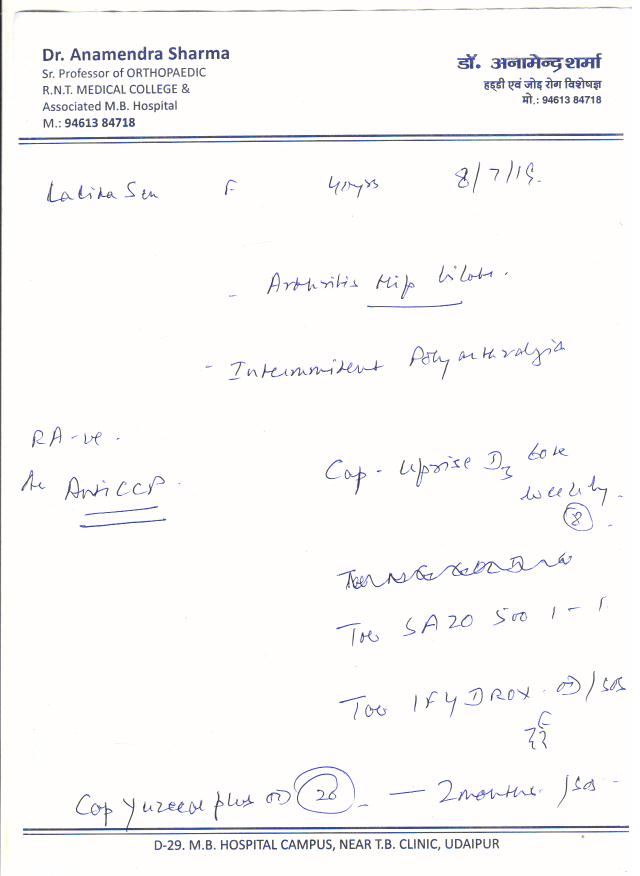 Dr. Anamendra Sharma
Sr. Professor of ORTHOPAEDIC
R.N.T. MEDICAL COLLEGE &
Associated M.B. Hospital
M.: 94613 84718
डॉ. अनामेन्द्र शर्मा
हड्डी एवं जोड़ रोग विशेषज्ञ
मो.: 94613 84718
Lalita Sen F 40yrs 8/7/19.
- Arthritis Hip
- Intermmitent Polyarthralgia
RA-ve.
Anti CCP.
Cap - Uprise D3 60k
weekly.
8
SAZO 500 1-1
OD/SOS
Cap plus OD 20 - 2months. /SOS
D-29. M.B. HOSPITAL CAMPUS, NEAR T.B. CLINIC, UDAIPUR